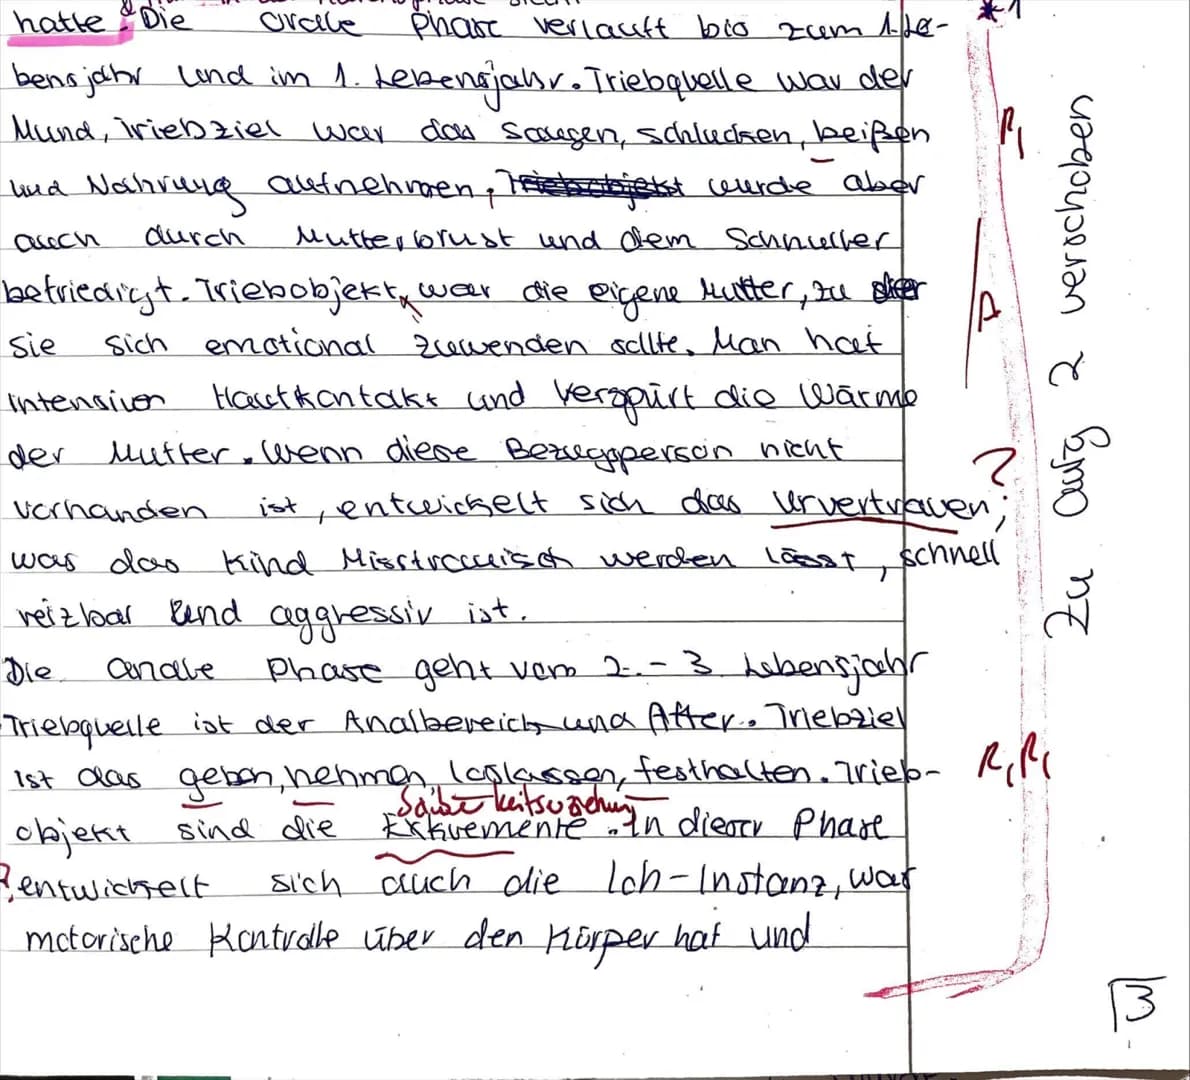 hatte. Die orale Phase verläuft bis zum 1. Le-
bensjahr und im 1. Lebensjahr. Triebquelle war der
Mund, Triebziel war das Saugen, schlucken, beißen
und Nahrung aufnehmen, wurde aber
auch durch Mutterbrust und dem Schnuller
befriedigt. Triebobjekt war die eigene Mutter, zu der
sie sich emotional zuwenden sollte. Man hat
intensiven Hautkontakt und Verspürt die Wärme
der Mutter. Wenn diese Bezugsperson nicht
vorhanden ist, entwickelt sich das Urvertrauen,
was das Kind Misstrauisch werden lässt, schnell
reizbar und aggressiv ist.
Die anale Phase geht vom 2. - 3 Lebensjahr
Triebquelle ist der Analbereich und After. Triebziel
ist das geben, nehmen, loslassen, festhalten. Trieb-
Sauberkeitserziehung
objekt sind die Exkremente. In dieser Phase
entwickelt sich auch die Ich-Instanz, was
motorische Kontrolle über den Körper hat und
*1
R,
A
?
R, R,
zu Aufg 2 verschoben
3